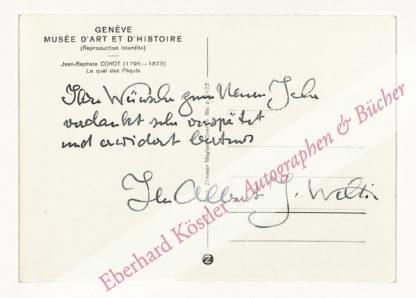 GENÈVE
MUSÉE D'ART ET D'HISTOIRE
(Reproduction interdite)
Jean-Baptiste COROT (1796–1875)
Le quai des Pâquis
Ihre Wünsche zum Neuen Jahr
verdankt sehr verspätet
und erwidert bestens
Ihr Albert J. Welti
Eberhard Köstler Autographen & Bücher